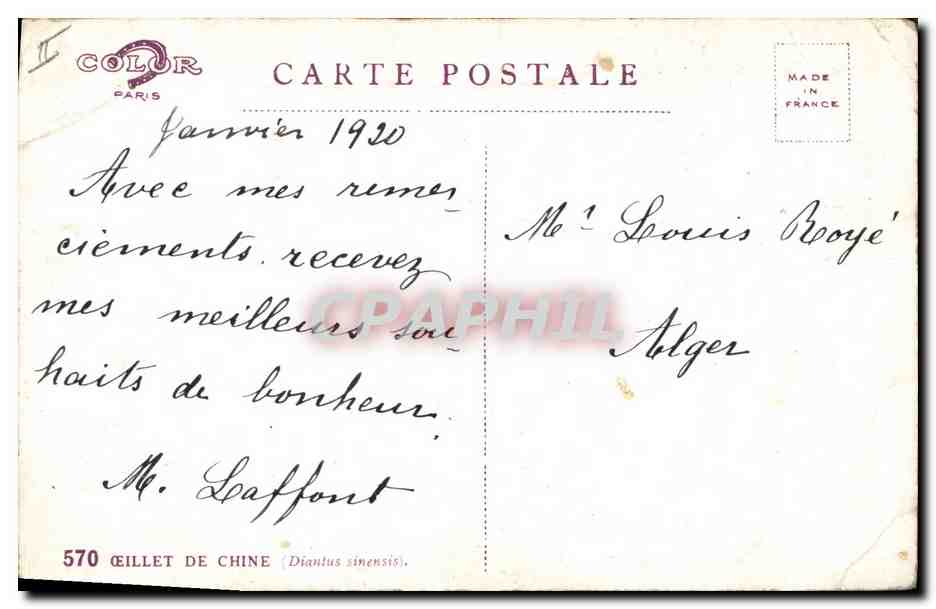 II
COLOR
PARIS
CARTE POSTALE
MADE
IN
FRANCE
Janvier 1920
Avec mes remer-
ciements. recevez
mes meilleurs sou-
haits de bonheur.
M. Laffont
Mr Louis Royé
Alger
CPAPHIL
570 ŒILLET DE CHINE (Diantus sinensis).